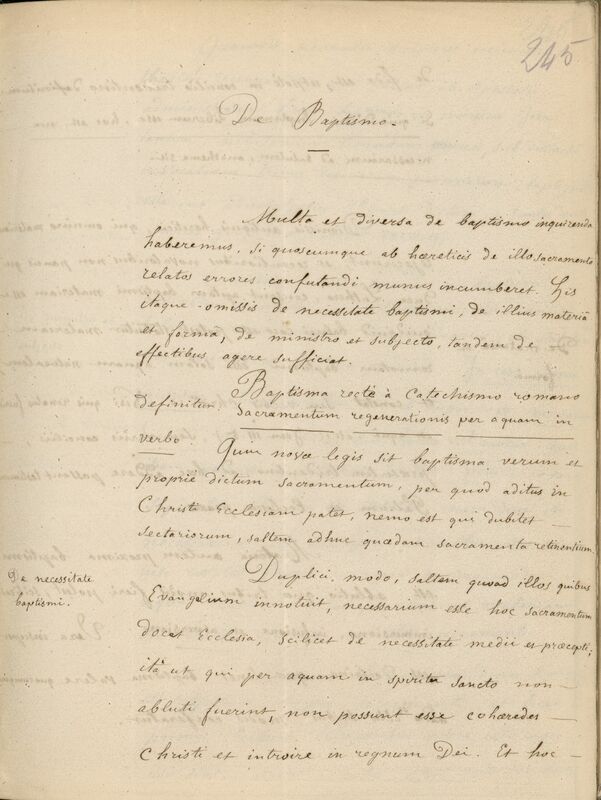 245
De Baptismo.
Multa et diversa de baptismo inquirenda
haberemus, si quoscumque ab hœreticis de illo sacramento
relatos errores confutandi munus incumberet. His
itaque omissis de necessitate baptismi, de illius materiâ
et forma, de ministro et subjecto, tandem de
effectibus agere sufficiat.
Baptisma rectè à Catechismo romano
definitur: Sacramentum regenerationis per aquam in
verbo. Quum novœ legis sit baptisma, verum et
propriè dictum sacramentum, per quod aditus in
Christi Ecclesiam patet, nemo est qui dubitet
sectariorum, saltem adhuc quœdam sacramenta retinentium.
De necessitate
baptismi.
Duplici modo, saltem quoad illos quibus
Evangelium innotuit, necessarium esse hoc sacramentum
docet Ecclesia, scilicet de necessitate medii et prœcepti;
itâ ut qui per aquam in spiritu sancto non
abluti fuerint, non possunt esse cohœredes
Christi et introire in regnum Dei. Et hoc